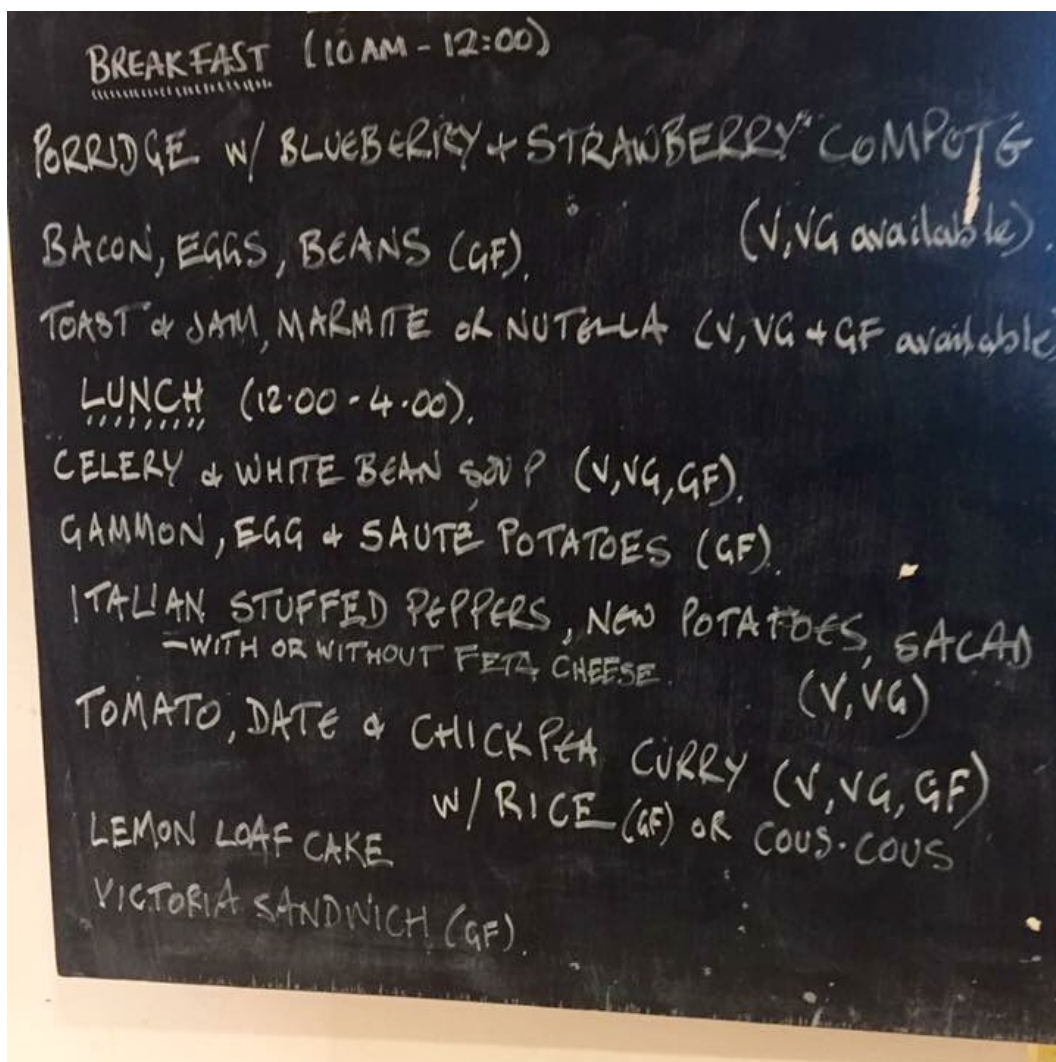 BREAKFAST (10AM - 12:00)
PORRIDGE W/ BLUEBERRY + STRAWBERRY COMPOTE
(V, VG available).
BACON, EGGS, BEANS (GF).
TOAST & JAM, MARMITE OR NUTELLA (V, VG + GF available)
LUNCH (12.00 - 4.00).
CELERY & WHITE BEAN SOUP (V, VG, GF).
GAMMON, EGG + SAUTE POTATOES (GF).
ITALIAN STUFFED PEPPERS, NEW POTATOES, SALAD
- WITH OR WITHOUT FETA CHEESE.
(V, VG)
TOMATO, DATE & CHICKPEA CURRY (V, VG, GF)
W/ RICE (GF) OR COUS-COUS
LEMON LOAF CAKE
VICTORIA SANDWICH (GF).